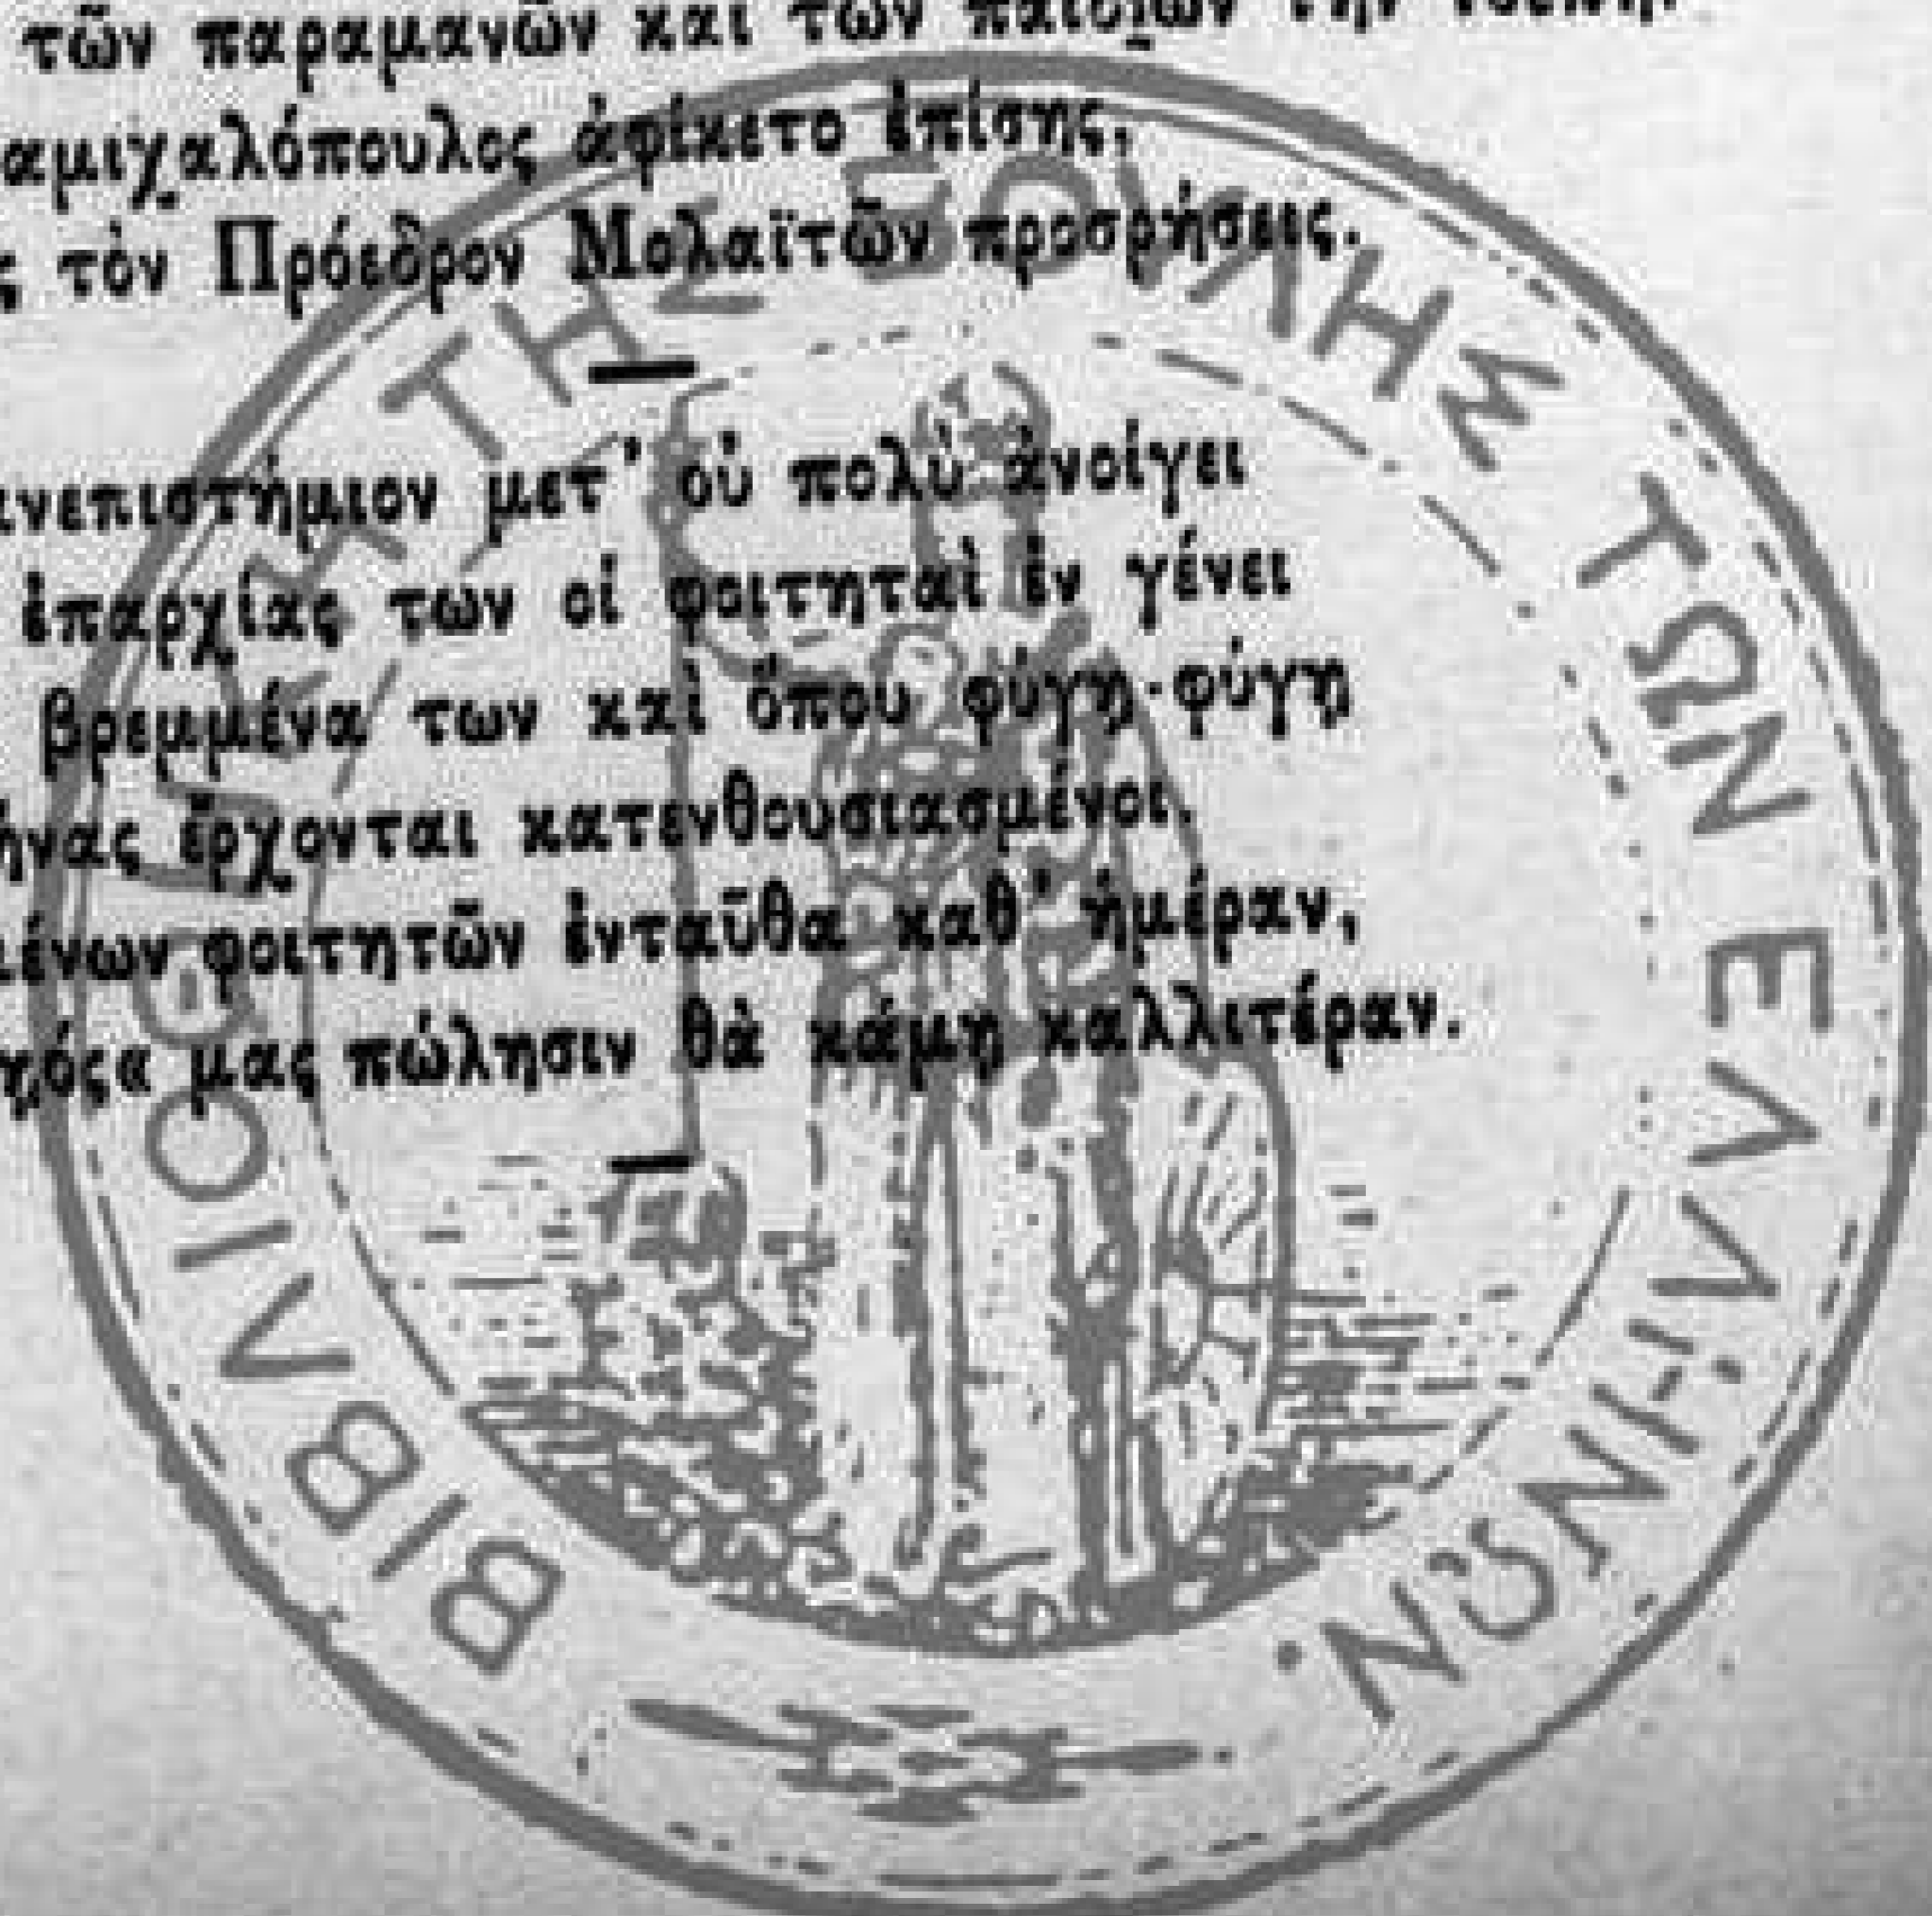 τῶν παραμανῶν καὶ τῶν παιδίων τὴν
αμιχαλόπουλος ἀφίκετο ἐπίσης,
ς τὸν Πρόεδρον Μολαϊτῶν προσρήσεις.
—
ανεπιστήμιον μετ' οὐ πολὺ ἀνοίγει
ἐπαρχίας των οἱ φοιτηταὶ ἐν γένει
βρεμμένα των καὶ ὅπου φύγῃ-φύγῃ
ήνας ἔρχονται κατενθουσιασμένοι.
μένων φοιτητῶν ἐνταῦθα καθ' ἡμέραν,
μας πώλησιν θὰ κάμῃ καλλιτέραν.
—
ΒΙΒΛΙΟΘΗΚΗ ΤΗΣ ΒΟΥΛΗΣ ΤΩΝ ΕΛΛΗΝΩΝ.